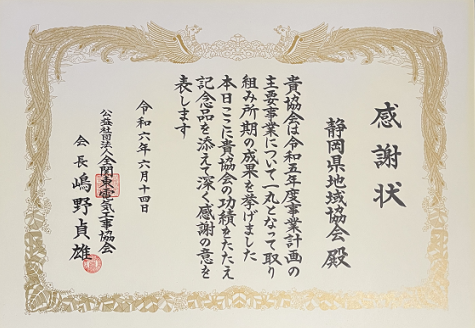 感謝状
静岡県地域協会殿
貴協会は令和五年度事業計画の
主要事業について一丸となって取り
組み所期の成果を挙げました
本日ここに貴協会の功績をたたえ
記念品を添えて深く感謝の意を
表します
令和六年六月十四日
公益社団法人全関東電気工事協会
会長嶋野貞雄